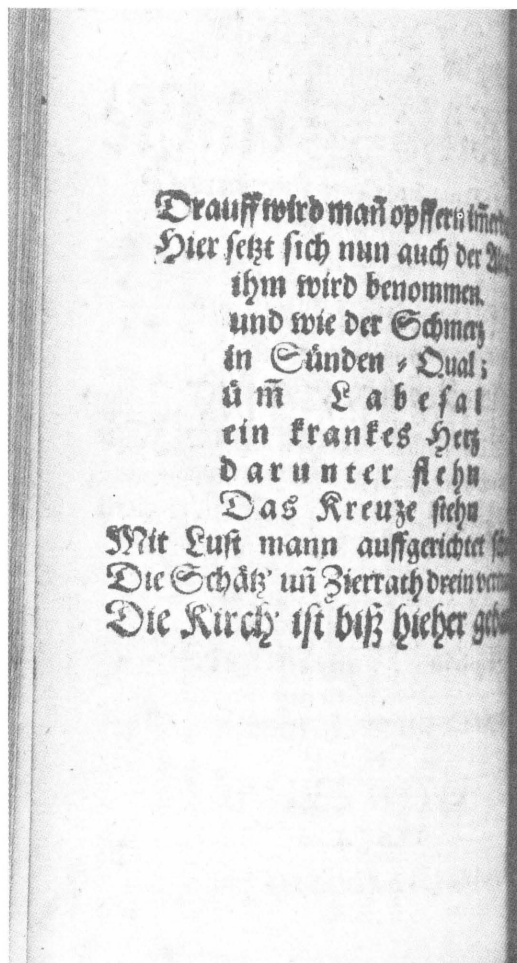 Drauff wird mañ opffern
Hier setzt sich nun auch der
ihm wird benommen.
und wie der Schmerz
in Sünden ⸗ Qual;
üm̃ Labesal
ein krankes Hertz
darunter flehn
Das Kreuze stehn
Mit Lust mann auffgerichtet
Die Schätz' uñ Zierrath drein
Die Kirch' ist biß hieher